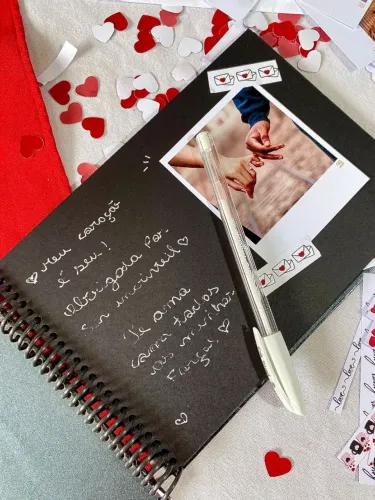 Meu coração
é seu!
Obrigada por
ser incrível
Te amo
com todas
as minhas
forças!
love
love
love